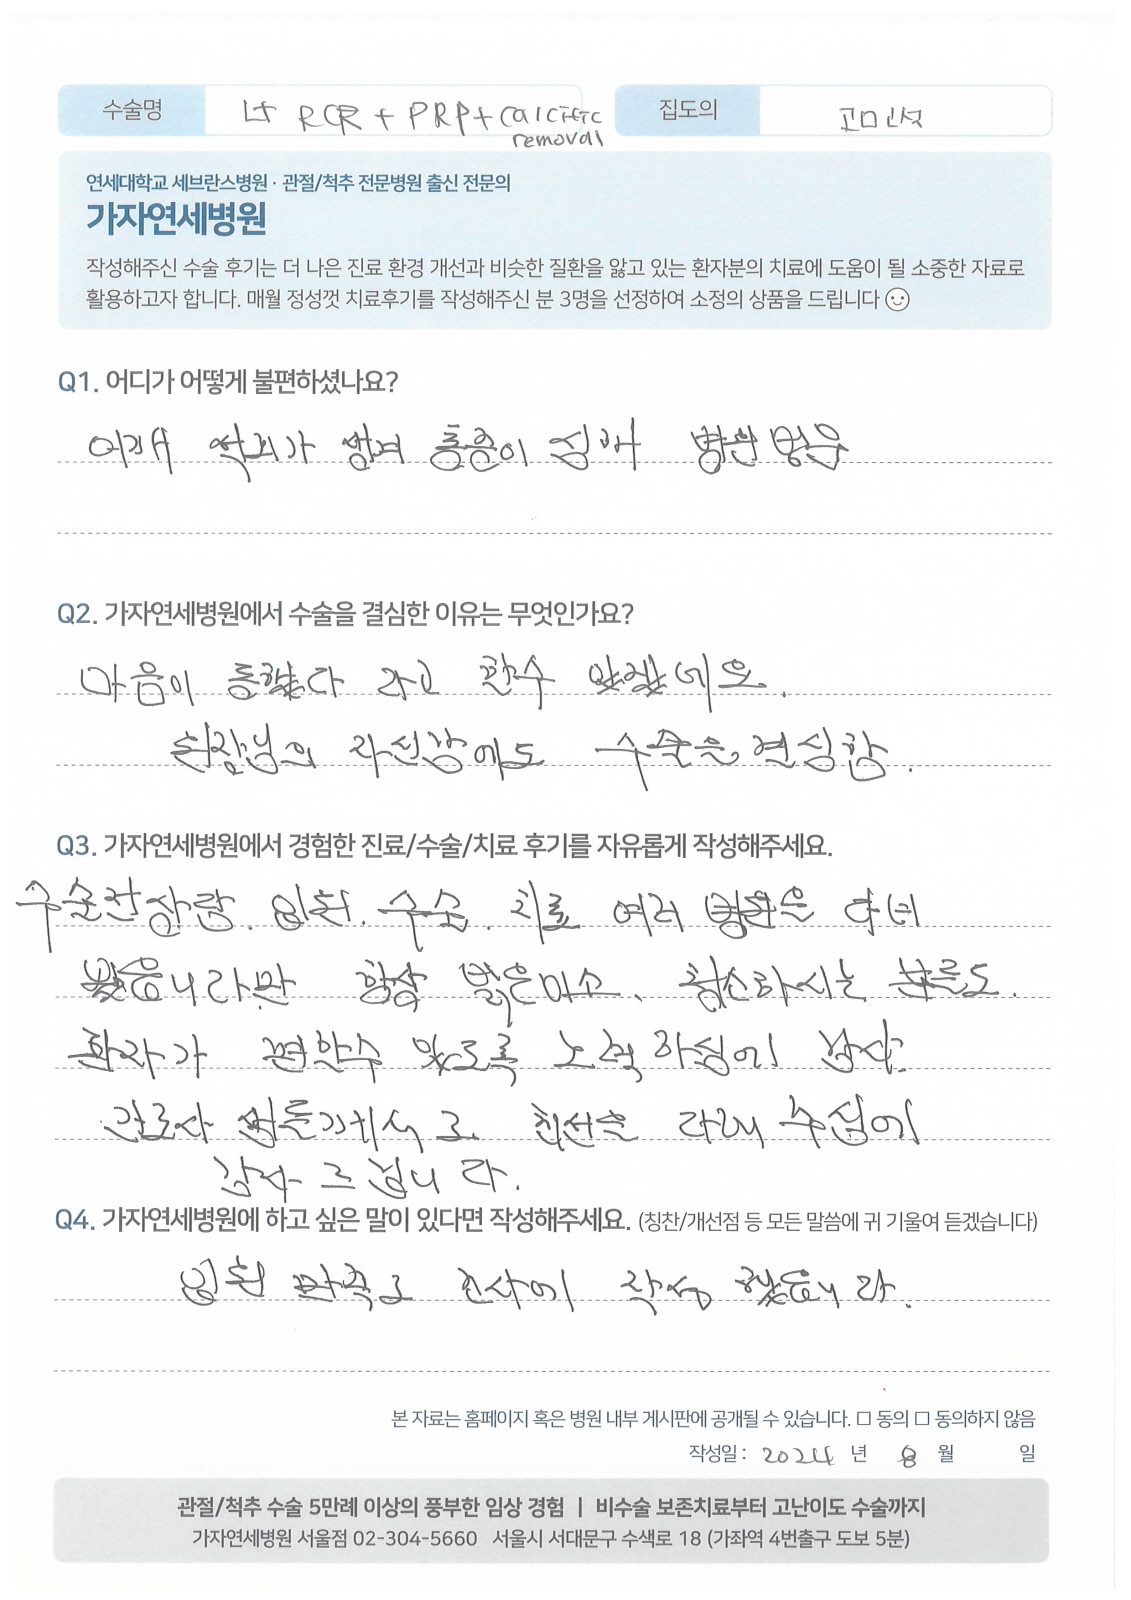 수술명 Lt RCR + PRP + calcific removal 집도의 고민석
연세대학교 세브란스병원 · 관절/척추 전문병원 출신 전문의
가자연세병원
작성해주신 수술 후기는 더 나은 진료 환경 개선과 비슷한 질환을 앓고 있는 환자분의 치료에 도움이 될 소중한 자료로
활용하고자 합니다. 매월 정성껏 치료후기를 작성해주신 분 3명을 선정하여 소정의 상품을 드립니다
Q1. 어디가 어떻게 불편하셨나요?
어깨 통증이 심해
Q2. 가자연세병원에서 수술을 결심한 이유는 무엇인가요?
마음이 통했다 라고 할수 있겠네요.
자신감에도 수술을 결심함.
Q3. 가자연세병원에서 경험한 진료/수술/치료 후기를 자유롭게 작성해주세요.
수술전 입원. 수술. 치료 여러 병원을 다녀
봤습니다만 항상 밝은미소. 분들도.
환자가 편할수 있도록 노력하심에 감사.
최선을 다해 주심에
감사 드립니다.
Q4. 가자연세병원에 하고 싶은 말이 있다면 작성해주세요. (칭찬/개선점 등 모든 말씀에 귀 기울여 듣겠습니다)
입원 만족도 작성 했습니다.
본 자료는 홈페이지 혹은 병원 내부 게시판에 공개될 수 있습니다. □ 동의 □ 동의하지 않음
작성일 : 2024 년 8 월 일
관절/척추 수술 5만례 이상의 풍부한 임상 경험 | 비수술 보존치료부터 고난이도 수술까지
가자연세병원 서울점 02-304-5660 서울시 서대문구 수색로 18 (가좌역 4번출구 도보 5분)